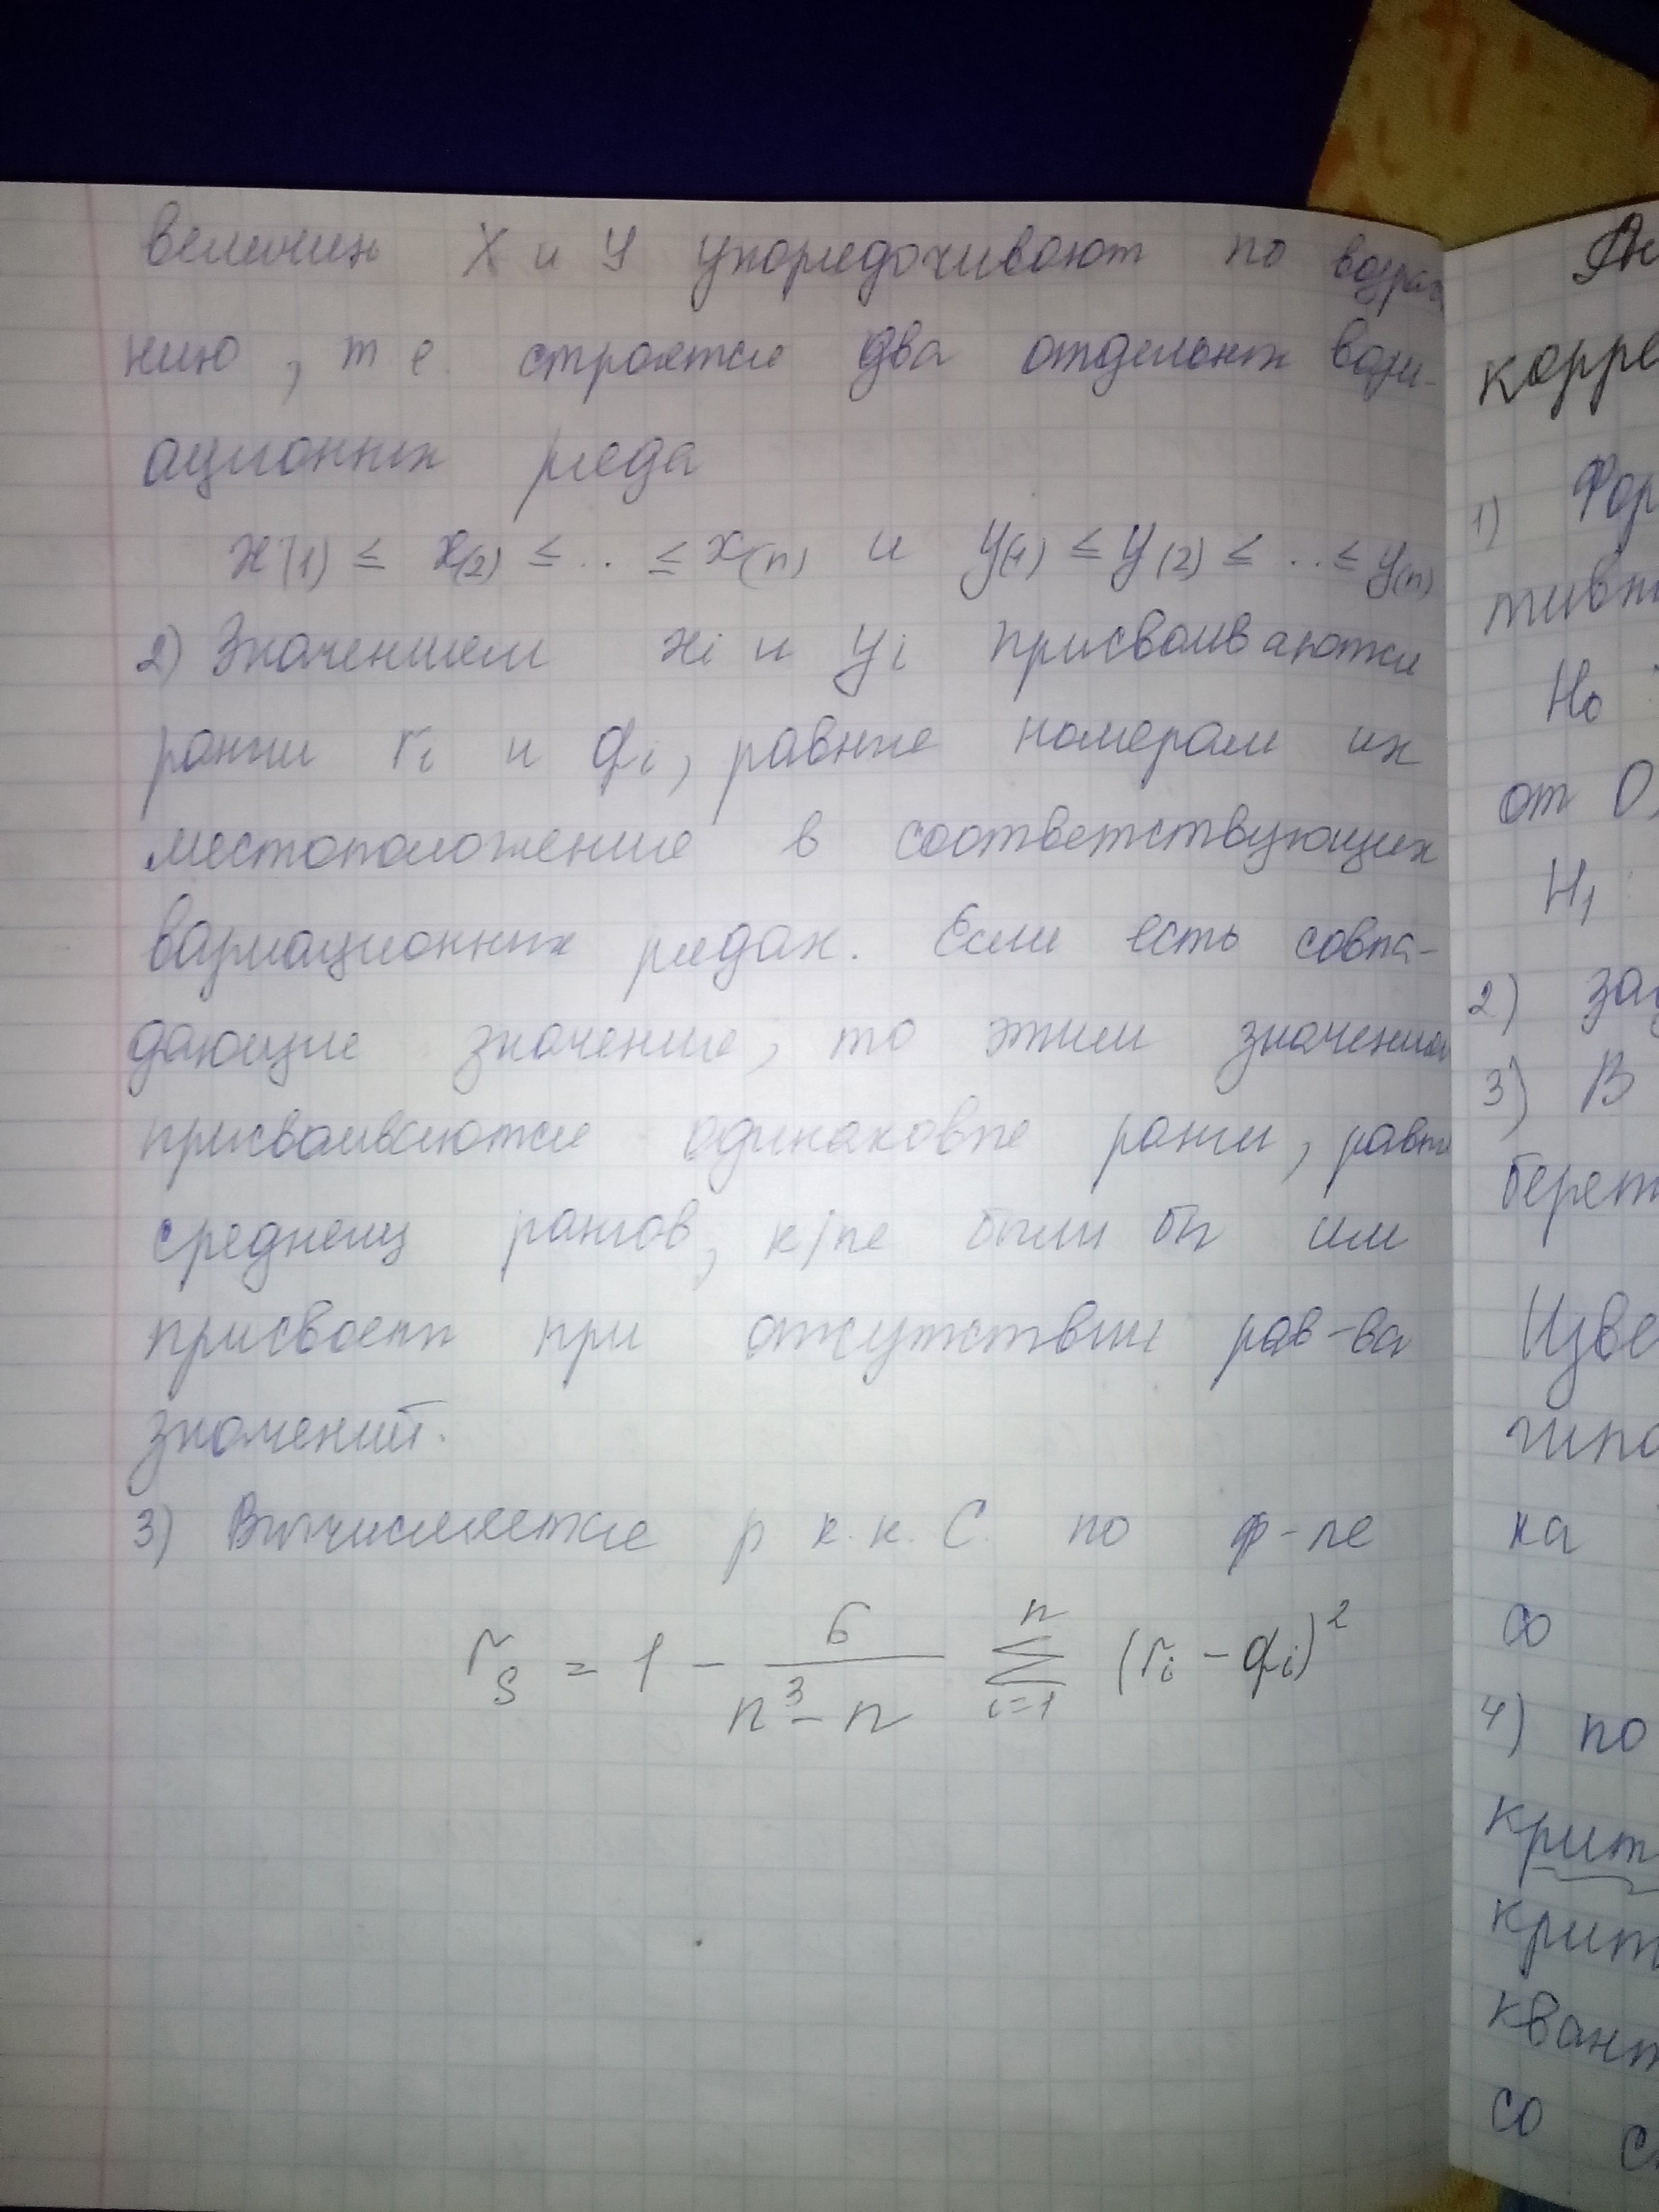 величин X и Y упорядочивают по возраста
нию, т е. строятся два отдельных вари-
ационных ряда
x(1) ≤ x(2) ≤ .. ≤ x(n) и y(1) ≤ y(2) ≤ .. ≤ y(n)
2) Значениям xi и yi присваиваются
ранги ri и qi, равные номерам их
местоположения в соответствующих
вариационных рядах. Если есть совпа-
дающие значения, то этим значениям
присваиваются одинаковые ранги, равные
среднему рангов, к/рые были бы им
присвоены при отсутствии рав-ва
значений.
3) Вычисляется р к.к. С. по ф-ле
r_s = 1 - 6/(n^3 - n) ∑_{i=1}^{n} (ri - qi)^2
Ан
корре
1) Фор
тивн
H0 :
от 0,
H1 :
2) зад
3) В
берет
Изве
гипо
на
со
4) по
крит
крит
квант
со с